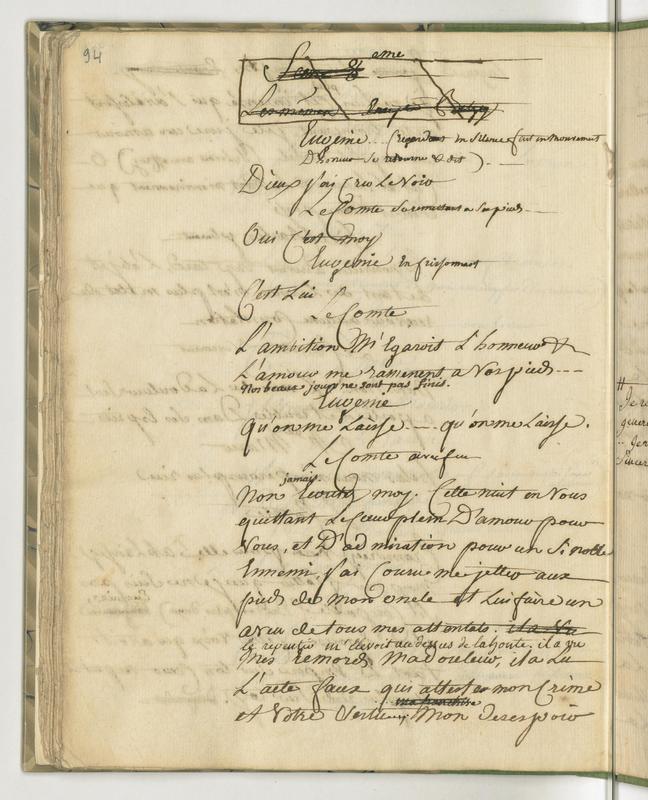 94
Scene 8 eme
Eugenie (regardant en silence fait un mouvement
D'horreur se retourne & dit)
Dieux j'ai Cru Le Voir
Le Comte se remettant a ses pieds
Oui C'est moy
Eugenie en frissonnant
C'est Lui
Le Comte
L'ambition M'Egaroit L'honneur &
L'amour me ramenent a Vos pieds ---
Nos beaux jours ne sont pas finis.
Eugenie
Qu'on me Laisse --- qu'on me Laisse.
Le Comte avec feu
jamais.
Non Ecoutez moy. Cette nuit en Vous
quittant Le Coeur plein D'amour pour
Vous, et D'admiration pour un Si noble
Ennemi j'ai Couru me jetter aux
pieds de mon oncle et Lui faire un
aveu de tous mes attentats. il a Vu
Le repentir m'Elevoit au dessus de la honte, il a vu
Mes remords Ma douleur, il a Lu
L'acte faux qui atteste mon Crime
ma franchise
et Votre Vertu, Mon Desespoir